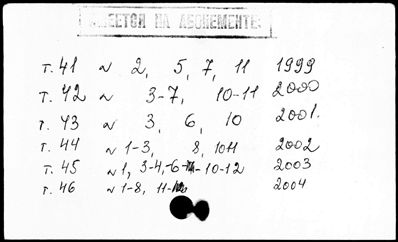 ИМЕЕТСЯ НА АБОНЕМЕНТЕ
т. 41 № 2, 5, 7, 11 1999
т. 42 № 3-7, 10-11 2000
т. 43 № 3, 6, 10 2001.
т. 44 № 1-3, 8, 10 11 2002
т. 45 № 1, 3-4, -6 -10-12 2003
т. 46 № 1-8, 11- 2004